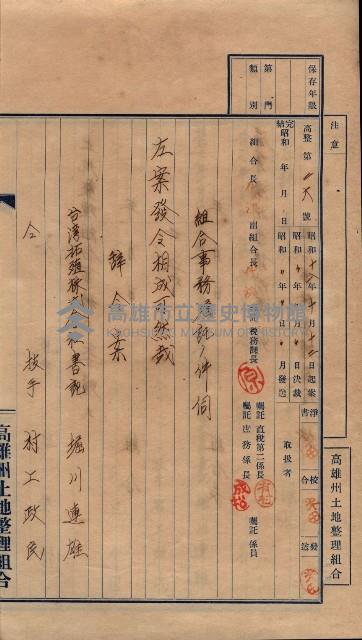 注意
高雄州土地整理組合
保存年限
第 門
類 別
高整第 號
昭和 年 月 日起案
昭和 年 月 日決裁
昭和 年 月 日發送
完結 昭和 年 月 日
淨書
校合
發送
取扱者
組合長
副組合長
稅務課長
囑託 直稅第二係長
囑託 庶務係長
囑託 係員
組合事務囑託ノ件伺
左案發令相成可然哉
辭令案
台灣拓殖株式會社書記 堀川連雄
仝 技手 村上政民
高雄州土地整理組合
高雄市立歷史博物館
KAOHSIUNG MUSEUM OF HISTORY